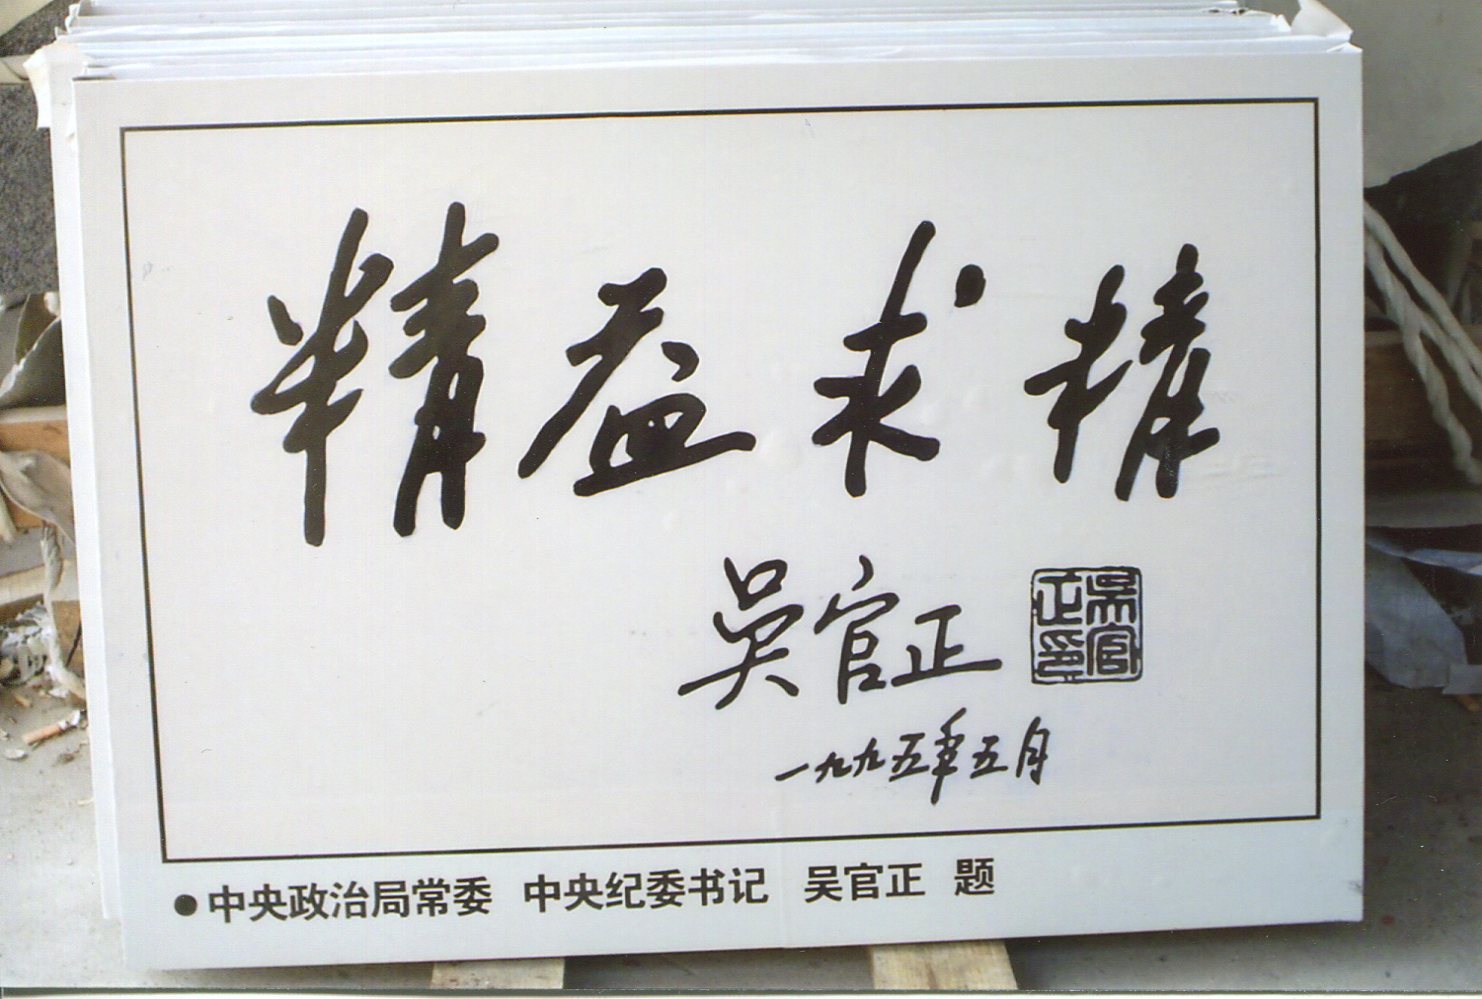 精益求精
吴官正
吴官正印
一九九五年五月
●中央政治局常委 中央纪委书记 吴官正 题